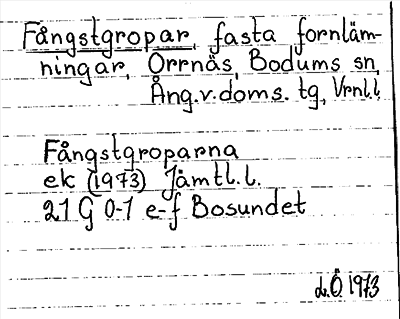 Fångstgropar, fasta fornläm-
ningar, Orrnäs, Bodums sn,
Ång.v.doms. tg, Vrnl.l.
Fångstgroparna
ek (1973) Jämtl.l.
21 G 0-1 e-f Bosundet
L.Ö. 1973